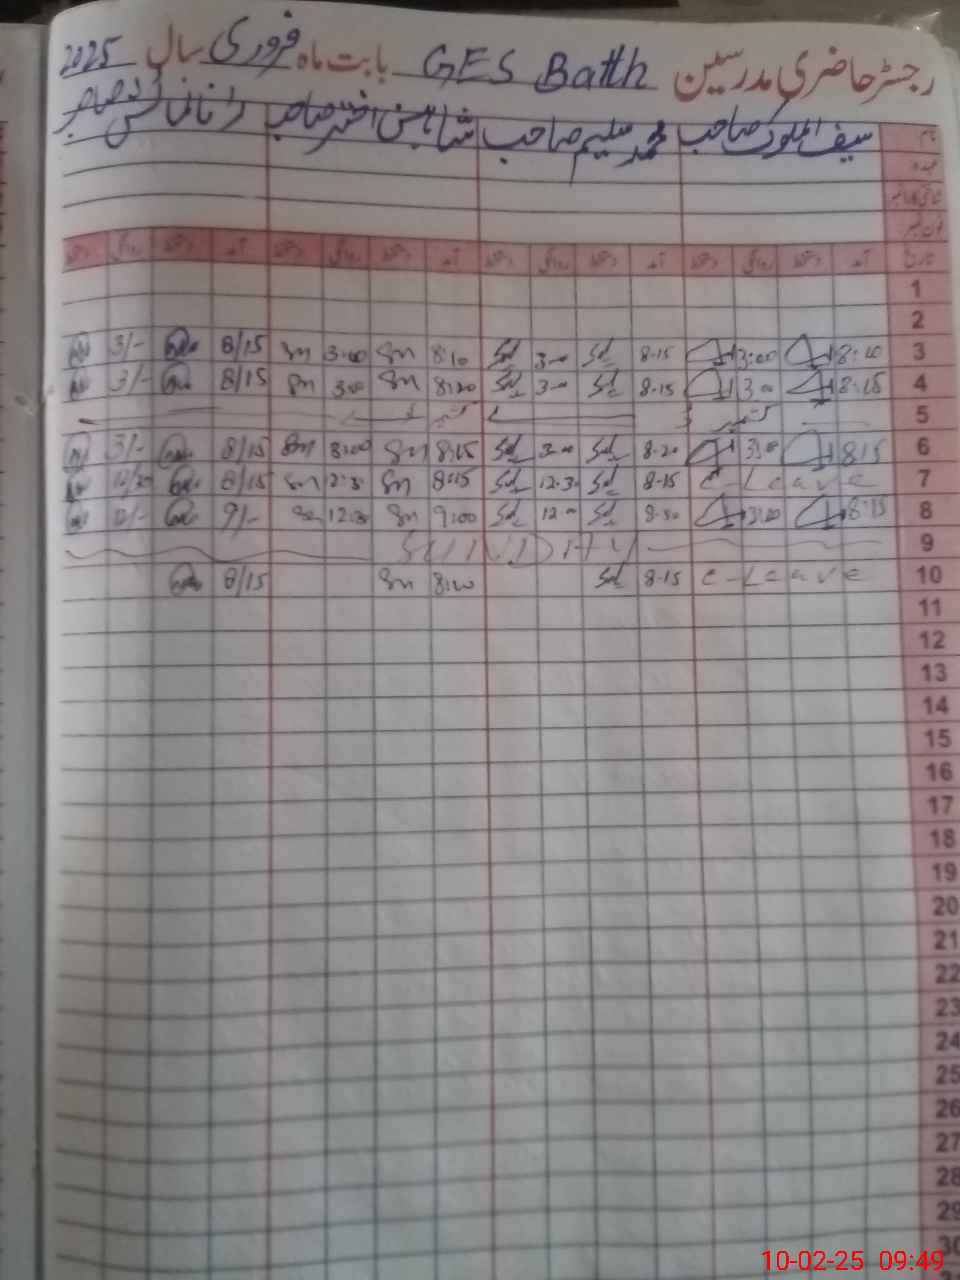 رجسٹر حاضری مدرسین GES Batth بابت ماہ فروری سال 2025
نام سیف الملوک صاحب محمد سلیم صاحب شاہین اختر صاحبہ
عہدہ
تاریخ آمد دستخط روانگی دستخط آمد دستخط روانگی دستخط آمد دستخط روانگی دستخط آمد دستخط روانگی دستخط
1
2
3 8:10 3:00 8-15 Sd 3-00 Sd 8:10 Sn 3:00 Sn 8/15 3/-
4 8:15 3:00 8-15 Sd 3-00 Sd 8:20 Sn 3:00 Sn 8/15 3/-
5
6 8:15 3:00 8-20 Sd 3-00 Sd 8:15 Sn 3:00 Sn 8/15 3/-
7 C-Leave 8-15 Sd 12.30 Sd 8:15 Sn 12:30 Sn 8/15 12/30
8 8:15 3:00 Sd 12-00 Sd 9:00 Sn Sn 9/- 12/-
9 SUNDAY
10 C-Leave 8-15 Sd Sn 8/15
11
12
13
14
15
16
17
18
19
20
21
22
23
24
25
26
27
28
29
30
10-02-25 09:49